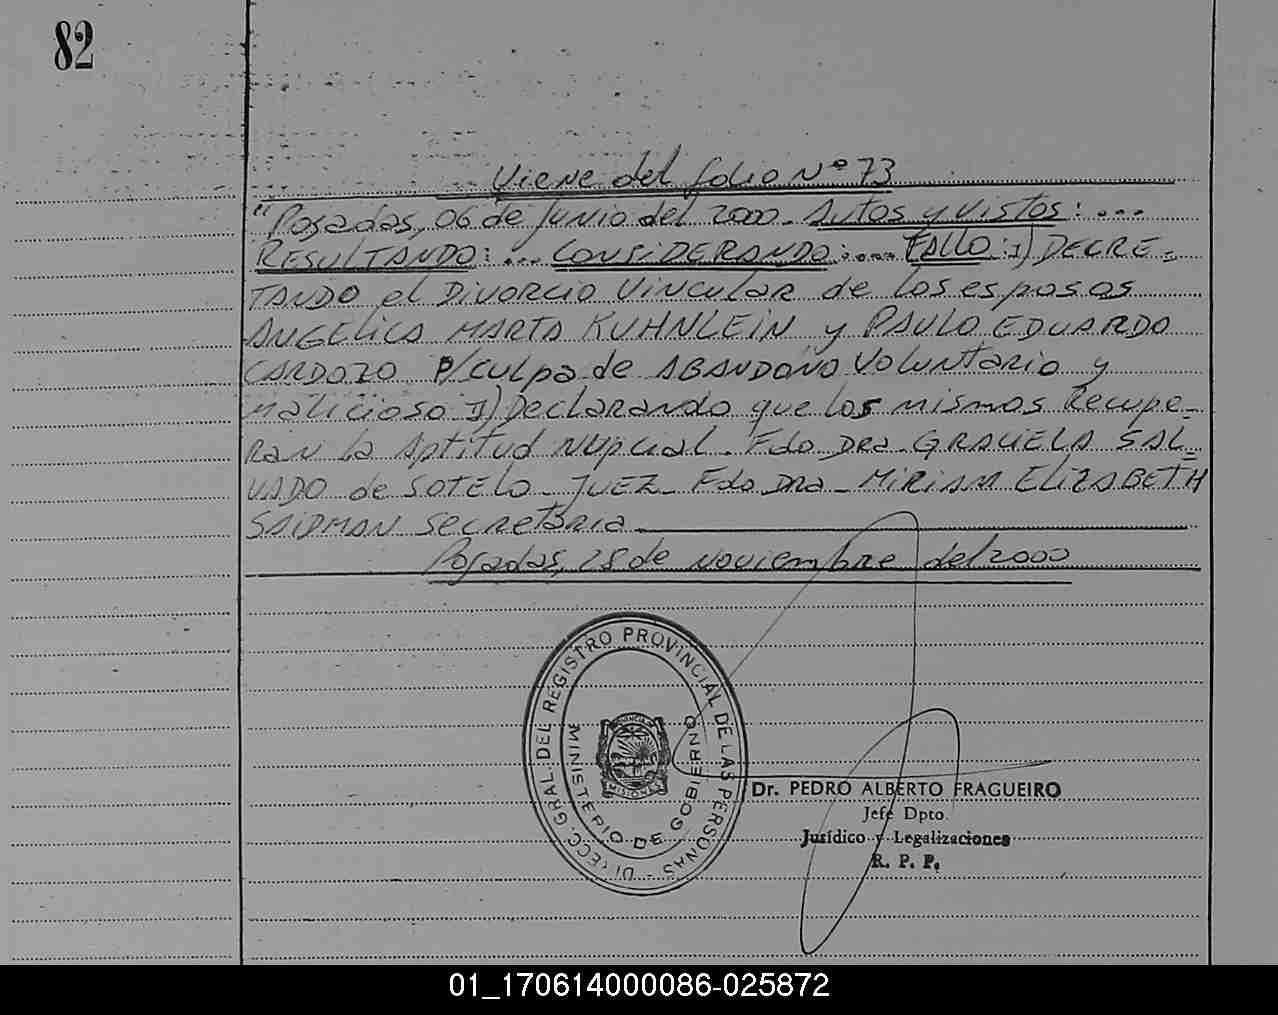 82
Viene del folio Nº 73
"Posadas, 06 de Junio del 2000. Autos y vistos: ...
RESULTANDO: ... CONSIDERANDO: .... FALLO: I) DECRE=
TANDO el DIVORCIO VINCULAR de los esposos
ANGELICA MARTA KUHNLEIN y PAULO EDUARDO
CARDOZO P/culpa de ABANDONO Voluntario y
Malicioso II) Declarando que los mismos Recupe-
RAN la Aptitud Nupcial. Fdo Dra. GRACIELA SAL=
VADO de SOTELO - JUEZ - Fdo Dra - MIRIAM ELIZABETH
SAIDMAN Secretaria
Posadas, 28 de Noviembre del 2000
DIRECC. GRAL. DEL REGISTRO PROVINCIAL DE LAS PERSONAS -
MINISTERIO DE GOBIERNO
MISIONES
Dr. PEDRO ALBERTO FRAGUEIRO
Jefe Dpto.
Jurídico y Legalizaciones
R. P. P.
01_170614000086-025872